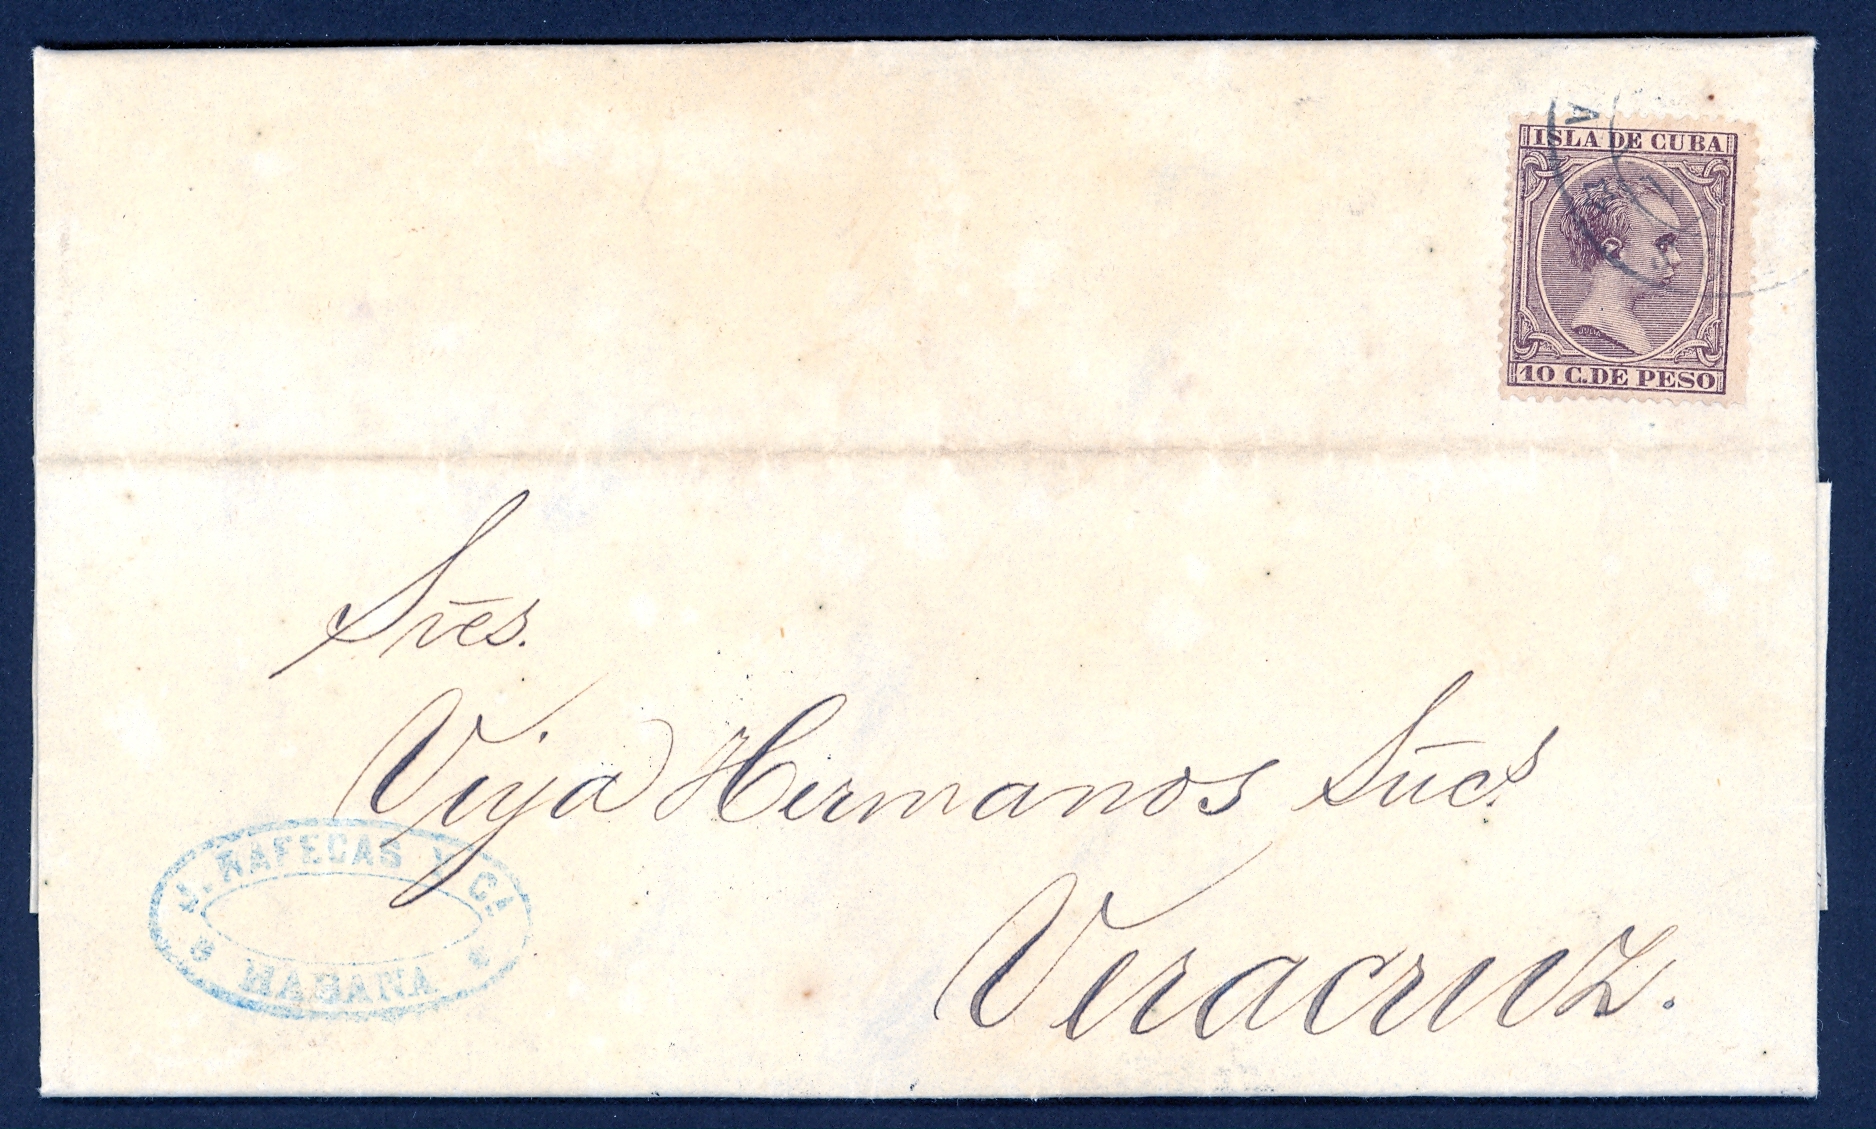 ISLA DE CUBA
JULIA
10 C. DE PESO
Sres.
Veja Hermanos Sucs.
Veracruz.
J. RAFECAS Y Ca.
HABANA